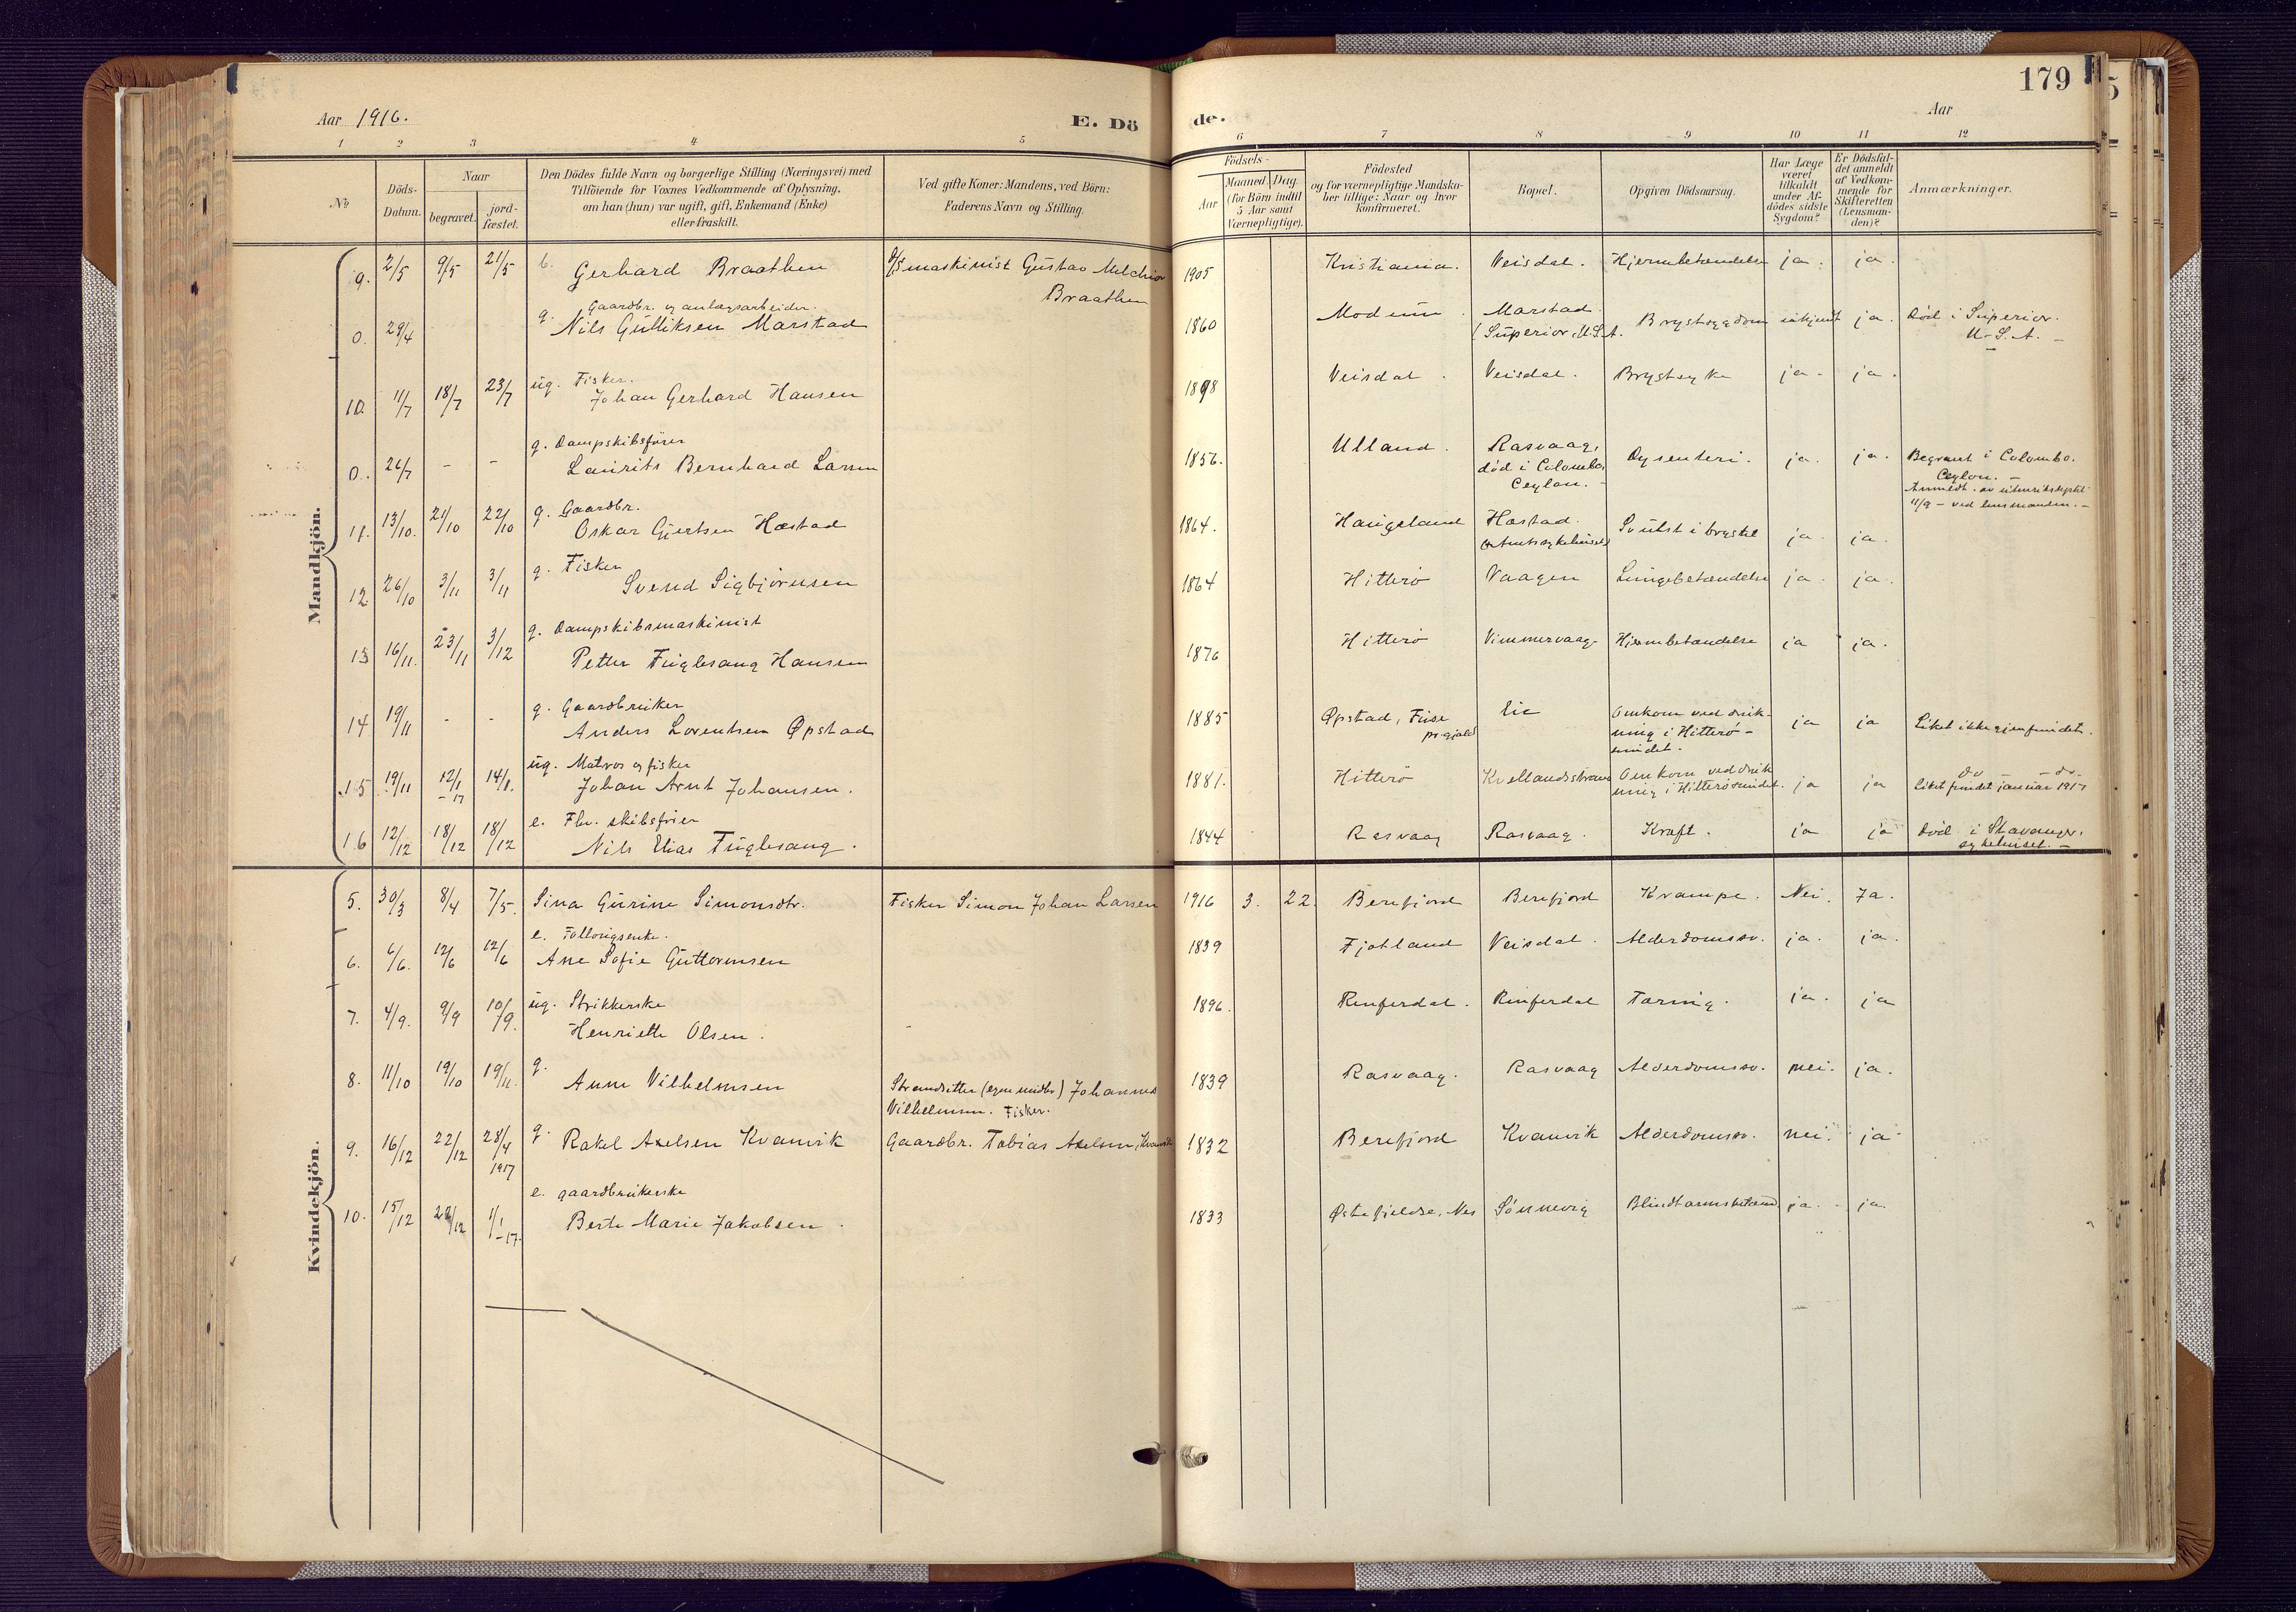 179
Aar 1916.
E. Dö
de.
Aar
1 2 3 4 5 6 7 8 9 10 11 12
№
Döds-
Datum.
Naar
begravet.
jord-
fæstet.
Den Dödes fulde Navn og borgerlige Stilling (Næringsvei) med
Tilföiende for Voxnes Vedkommende af Oplysning,
om han (hun) var ugift, gift, Enkemand (Enke)
eller fraskilt.
Ved gifte Koner: Mandens, ved Börn:
Faderens Navn og Stilling.
Födsels-
Aar
Maaned. Dag.
(for Börn indtil
5 Aar samt
Værnepligtige).
Födested
og for værnepligtige Mandska-
ber tillige: Naar og hvor
konfirmeret.
Bopæl.
Opgiven Dödsaarsag.
Har Læge
været
tilkaldt
under Af-
dödes sidste
Sygdom?
Er Dödsfal-
det anmeldt
af Vedkom-
mende for
Skifteretten
(Lensman-
den)?
Anmærkninger.
Mandkjön.
9. 2/5 9/5 21/5 Gerhard Braathen maskinist Gustav Melchior
Braathen
1905 Kristiania. Veisdal. Hjernebetændelse ja. ja.
g. Gaardbr. og anlægsarbeider.
0. 29/4 Nils Gulliksen Marstad
1860 Modum. Marstad. Brystsygdom ukjendt ja. död i Superior.
(Superior, U.S.A. U.S.A. -
ug. Fisker.
10. 11/7 18/7 23/7 Johan Gerhard Hansen
1898 Veisdal Veisdal. Brystsyke ja. ja.
g. Dampskibsförer
0. 26/7 - - Laurits Bernhard Larsen
1856. Ulland. Rasvaag, Dysenteri. ja. ja. Begravet i Colombo.
död i Colombo Ceylon. -
Ceylon. -
11/9 - ved lensmanden. -
g. Gaardbr.
11. 13/10. 21/10 22/10 Oskar Gjertsen Hæstad
1864. Haugeland Hæstad. Svulst i brystet ja. ja.
g. Fisker
12 26/10 3/11 3/11 Svend Sigbjörnsen
1864 Hitterö Vaagen Lungebetændelse ja. ja.
g. Dampskibsmaskinist
13 16/11. 23/11 3/12 Petter Fuglesang Hansen
1876 Hitterö Vimmervaag. Hjernebetændelse ja ja.
g. Gaardbruker
14 19/11 - - Anders Lorentsen Øpstad
1885 Øpstad, Fuse Lie Omkom ved druk- ja ja Liket ikke gjenfundet.
prgjæld ning i Hitterö-
sundet.
ug. Matros og fisker
15 19/11 12/1 -17 14/1. Johan Arnt Johansen.
1881. Hitterö Kvellandsstrand Omkom ved druk ja ja do - do.-
ning i Hitterösundet. Liket fundet januar 1917
e. Fhv. skibsförer
16 12/12 18/12 18/12 Nils Elias Fuglesang.
1844 Rasvaag Rasvaag. Kræft. ja ja död i Stavanger.
sykehuset. -
Kvindekjön.
5. 30/3 8/4 7/5. Sina Gurine Simonsdtr. Fisker Simon Johan Larsen
1916 3. 22. Berefjord Berefjord Krampe. Nei. Ja.
6. 6/6. 12/6 12/6 Ane Sofie Guttormsen
1839 Fjotland Veisdal. Alderdomssv. ja. ja.
ug. Strikkerske
7. 4/9. 9/9 10/9. Henriette Olsen.
1896. Renferdal. Renferdal Tæring. ja. ja
g.
8. 11/10 19/10 19/11. Anne Vilhelmsen Strandsitter Johannes
Vilhelmsen. Fisker.
1839 Rasvaag. Rasvaag Alderdomssv. nei. ja.
g.
9. 16/12 22/12 28/4 1917 Rakel Axelsen Kvanvik Gaardbr. Tobias Axelsen, Kvanvik
1832 Berefjord Kvanvik Alderdomssv. nei. ja
e. gaardbrukerske
10. 15/12 1/1 -17. Berte Marie Jakobsen.
1833 Nes Sönnevig Blindtarmsbetænd ja. ja.